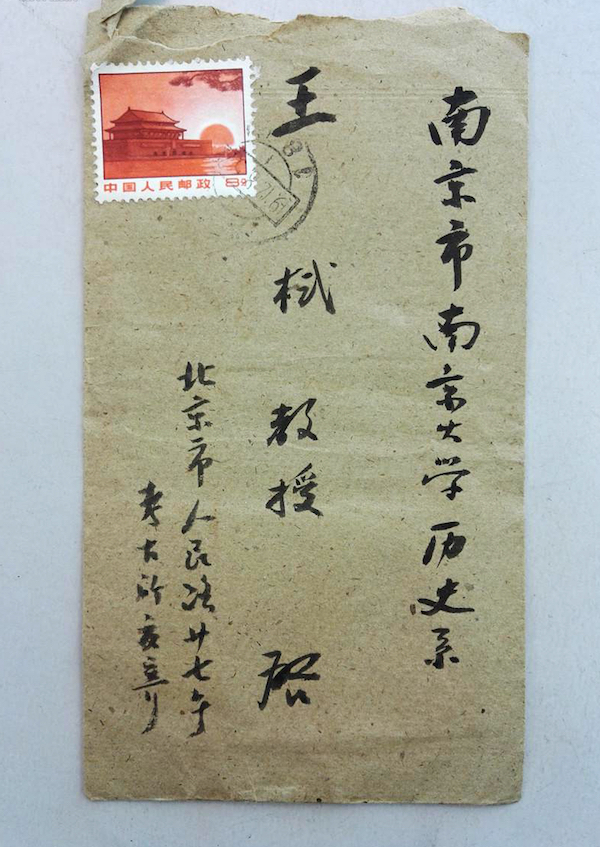 南京市南京大学历史系
王栻教授 启
北京市人民路廿七号
考古所夏
中国人民邮政 8分